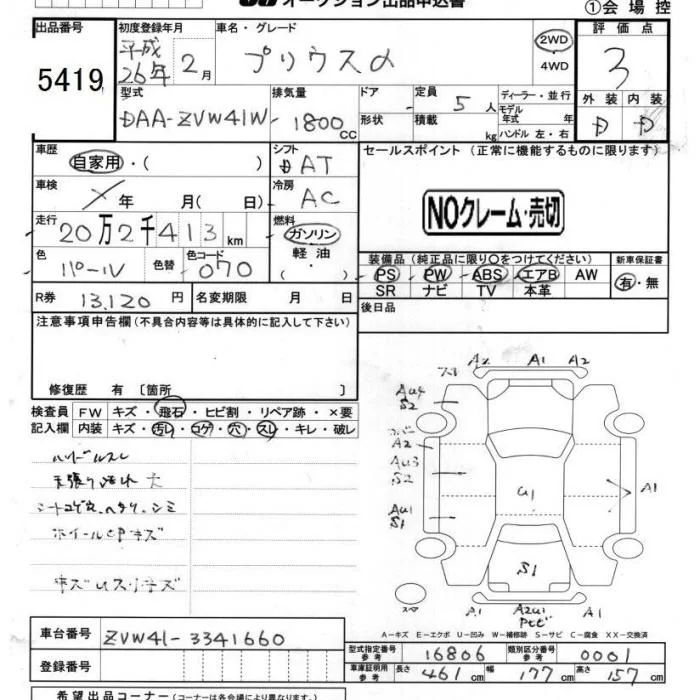 オークション出品申込書
①会場控
出品番号
5419
初度登録年月
平成26年2月
車名・グレード
プリウスα
2WD
4WD
評価点
3
型式
DAA-ZVW41W
排気量
1800CC
ドア
形状
定員
5人
積載
kg
ディーラー・並行
モデル年式 年
ハンドル 左・右
外装
内装
D
D
車歴
自家用・( )
シフト
AT
セールスポイント(正常に機能するものに限ります)
車検
年 月( 日)
冷房
AC
NOクレーム・売切
走行
20万2千413km
燃料
ガソリン
軽油
( ・ )
色
パール
色替
色コード
070
装備品(純正品に限り○をつけてください)
新車保証書
PS PW ABS エアB AW
SR ナビ TV 本革
有・無
R券
13,120円
名変期限 月 日
後日品
注意事項申告欄(不具合内容等は具体的に記入して下さい)
修復歴 有〔箇所 〕
検査員記入欄
FW キズ・飛石・ヒビ割・リペア跡・×要
内装 キズ・汚レ・コゲ・穴・スレ・キレ・破レ
ハンドルスレ
天張り汚れ大
ホイールキズ
A2 A1 A2
AU4
S2
カバー
A2
AU3
S2
AU1
S1
U1
A1
S1
スペア
A1
A2U1
A1
A-キズ E-エクボ U-凹み W-補修跡 S-サビ C-腐食 XX-交換済
車台番号
ZVW41-3341660
登録番号
型式指定番号
参考
16806
類別区分番号
参考
0001
車庫証明用
参考
長さ 461cm 幅 177cm 高さ 157cm
希望出品コーナー(コーナーは各会場により異なります)